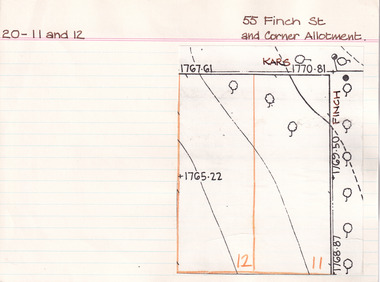 55 Finch St
20-11 and 12
and Corner Allotment.
KARS
1767.61
1770.81
FINCH
1769.50
1765.22
1768.87
12
11